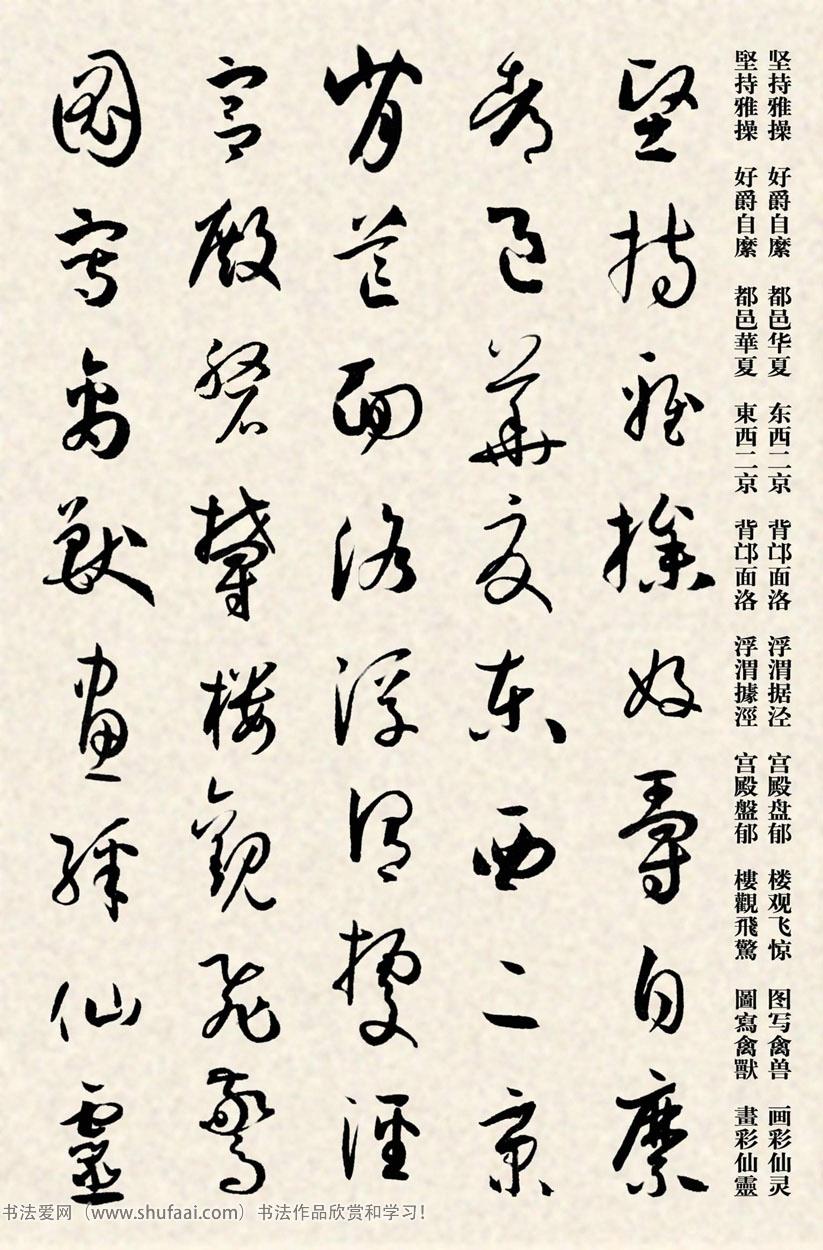 坚持雅操 好爵自縻 都邑华夏 东西二京 背邙面洛 浮渭据泾 宫殿盘郁 楼观飞惊 图写禽兽 画彩仙灵
堅持雅操 好爵自縻 都邑華夏 東西二京 背邙面洛 浮渭據涇 宮殿盤郁 樓觀飛驚 圖寫禽獸 畫彩仙靈
堅持雅操好爵自縻
都邑華夏東西二京
背芒面洛浮渭據涇
宮殿磐欝樓觀飛驚
圖寫禽獸畫綵仙靈
书法爱网（www.shufaai.com）书法作品欣赏和学习！